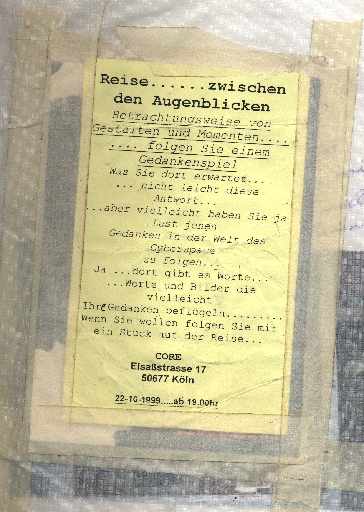 Reise......zwischen
den Augenblicken
Betrachtungsweise von
Gestalten und Momenten....
.... folgen Sie einem
Gedankenspiel
Was Sie dort erwartet...
... nicht leicht diese
Antwort...
...aber vielleicht haben Sie ja
Lust jenen
Gedanken in der Welt des
Cyberspace
zu folgen...
Ja ...dort gibt es Worte...
...Worte und Bilder die
vielleicht
Ihre Gedanken beflügeln.........
Wenn Sie wollen folgen Sie mir
ein Stück auf der Reise...
CORE
Elsaßstrasse 17
50677 Köln
22-10-1999.....ab 19.00hr